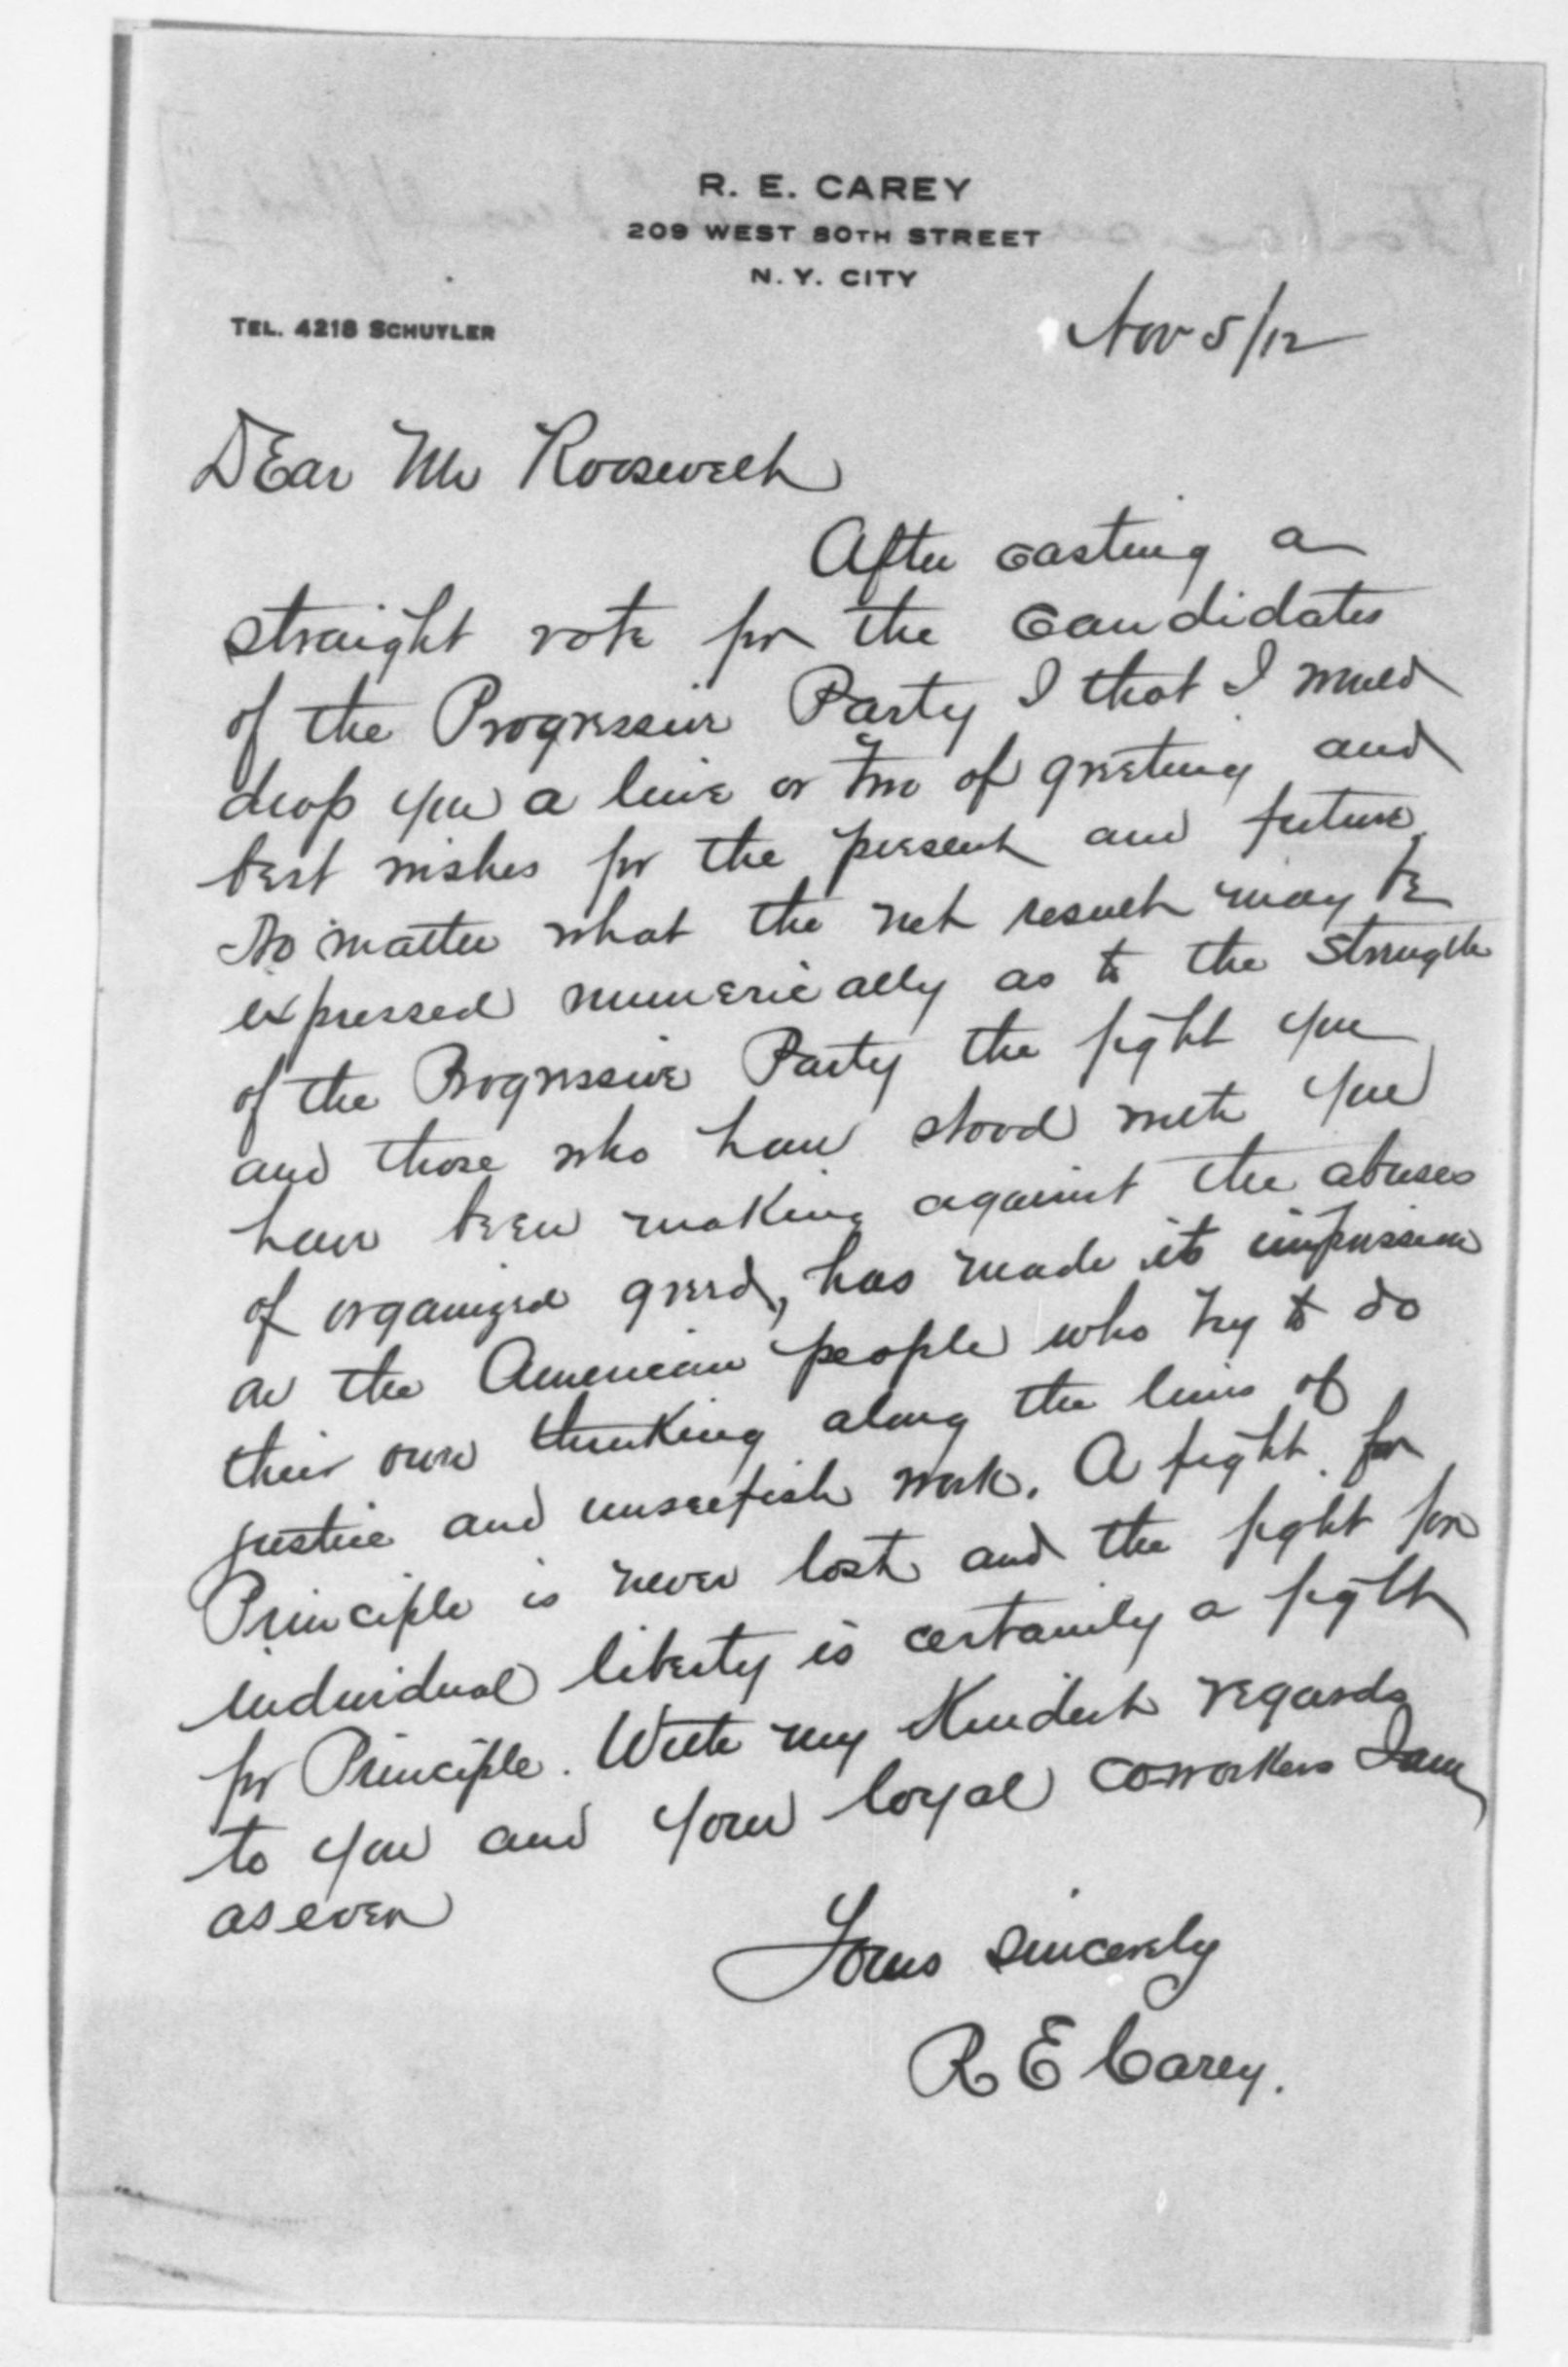 R. E. CAREY
209 WEST 80TH STREET
N. Y. CITY
TEL. 4218 SCHUYLER
Nov 5/12
Dear Mr Roosevelt
After casting a
straight vote for the candidates
of the Progressive Party I that I would
drop you a line or two of greeting and
best wishes for the present and future.
No matter what the net result may be
expressed numerically as to the strength
of the Progressive Party the fight you
and those who have stood with you
have been making against the abuses
of organized greed, has made its impression
on the American people who try to do
their own thinking along the lines of
justice and unselfish work. A fight for
Principle is never lost and the fight for
individual liberty is certainly a fight
for Principle. With my kindest regards
to you and your loyal coworkers I am
as ever
Yours sincerely
R E Carey.